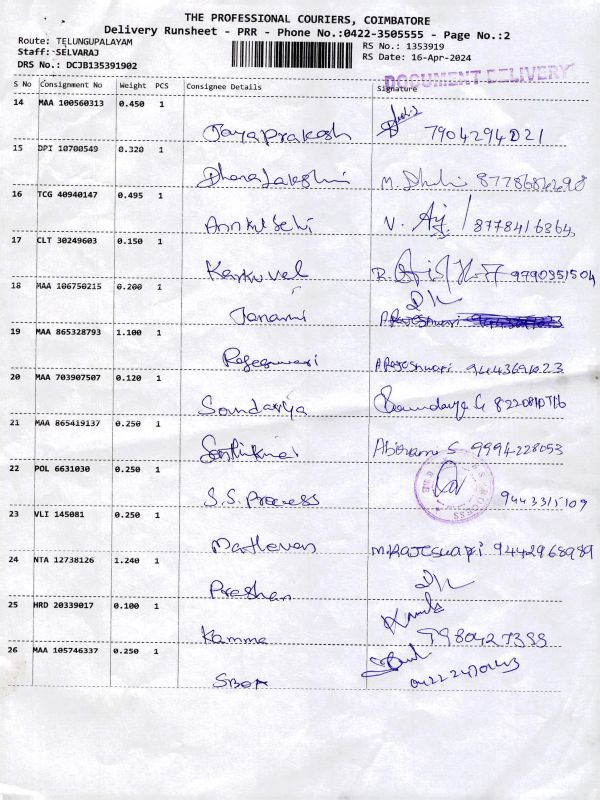 THE PROFESSIONAL COURIERS, COIMBATORE
Delivery Runsheet - PRR - Phone No.:0422-3505555 - Page No.:2
Route: TELUNGUPALAYAM
Staff: SELVARAJ
DRS No.: DCJB135391902
RS No.: 1353919
RS Date: 16-Apr-2024
DOCUMENT DELIVERY
S No Consignment No Weight PCS Consignee Details Signature
14 MAA 100560313 0.450 1 Jayaprakash
15 DPI 10700549 0.320 1 Dhanalakshmi
16 TCG 40940147 0.495 1 V. 8778416364
17 CLT 30249603 0.150 1 Karkuvel 9790351504
18 MAA 106750215 0.200 1 Janani
19 MAA 865328793 1.100 1 Rajeshwari A Rajeshwari
20 MAA 703907507 0.120 1 Soundariya
21 MAA 865419137 0.250 1 Abirami S 9994228053
22 POL 6631030 0.250 1 S.S. Process 9443315109
23 VLI 145081 0.250 1 Mathavan M.Rajeswari 9442968989
24 NTA 12738126 1.240 1
25 HRD 20339017 0.100 1
26 MAA 105746337 0.250 1